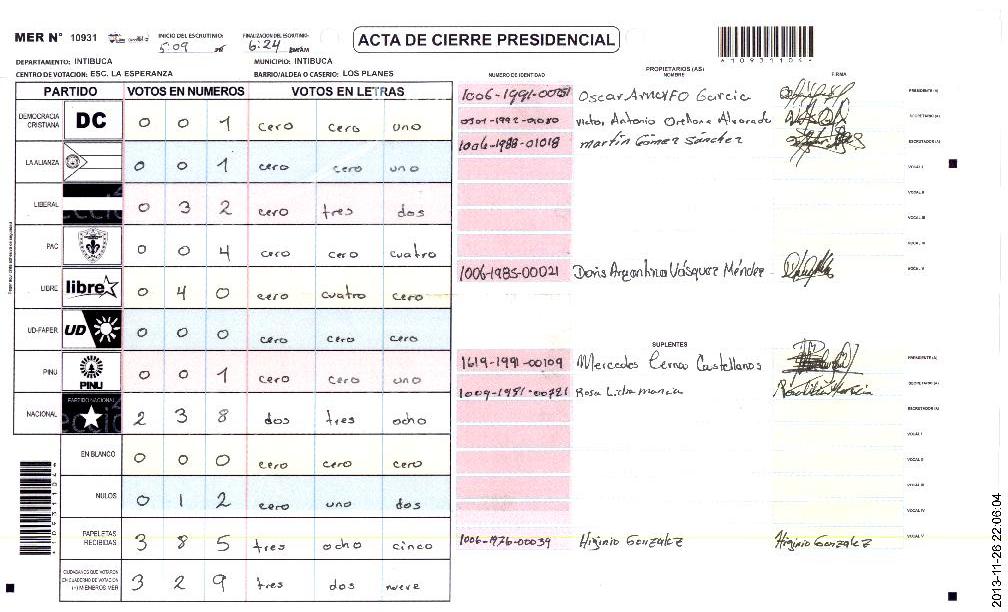 MER N° 10931
INICIO DEL ESCRUTINIO: 5:09
FINALIZACION DEL ESCRUTINIO: 6:24
ACTA DE CIERRE PRESIDENCIAL
DEPARTAMENTO: INTIBUCA
MUNICIPIO: INTIBUCA
CENTRO DE VOTACION: ESC. LA ESPERANZA
BARRIO/ALDEA O CASERIO: LOS PLANES
PARTIDO VOTOS EN NUMEROS VOTOS EN LETRAS
DEMOCRACIA CRISTIANA DC 0 0 1 cero cero uno
LA ALIANZA 0 0 1 cero cero uno
LIBERAL 0 3 2 cero tres dos
PAC 0 0 4 cero cero cuatro
LIBRE libre 0 4 0 cero cuatro cero
UD-FAPER UD 0 0 0 cero cero cero
PINU PINU 0 0 1 cero cero uno
NACIONAL PARTIDO NACIONAL 2 3 8 dos tres ocho
EN BLANCO 0 0 0 cero cero cero
NULOS 0 1 2 cero uno dos
PAPELETAS RECIBIDAS 3 8 5 tres ocho cinco
CIUDADANOS QUE VOTARON EN CUADERNO DE VOTACION (+) MIEMBROS MER 3 2 9 tres dos nueve
PROPIETARIOS (AS)
NUMERO DE IDENTIDAD NOMBRE FIRMA
Oscar Arnulfo Garcia PRESIDENTE (A)
Victor Antonio Orellana Alvarado SECRETARIO (A)
1006-1988-01018 Martin Gómez Sánchez ESCRUTADOR (A)
VOCAL I
VOCAL II
VOCAL III
VOCAL IV
1006-1985-00021 Doris Argentina Vásquez Méndez VOCAL V
SUPLENTES
1619-1991-00109 Mercedes Lemus Castellanos PRESIDENTE (A)
1009-1951-00721 Rosa Lidia SECRETARIO (A)
ESCRUTADOR (A)
VOCAL I
VOCAL II
VOCAL III
VOCAL IV
1006-1976-00039 Higinio Gonzalez Higinio Gonzalez VOCAL V
2013-11-26 22:06:04